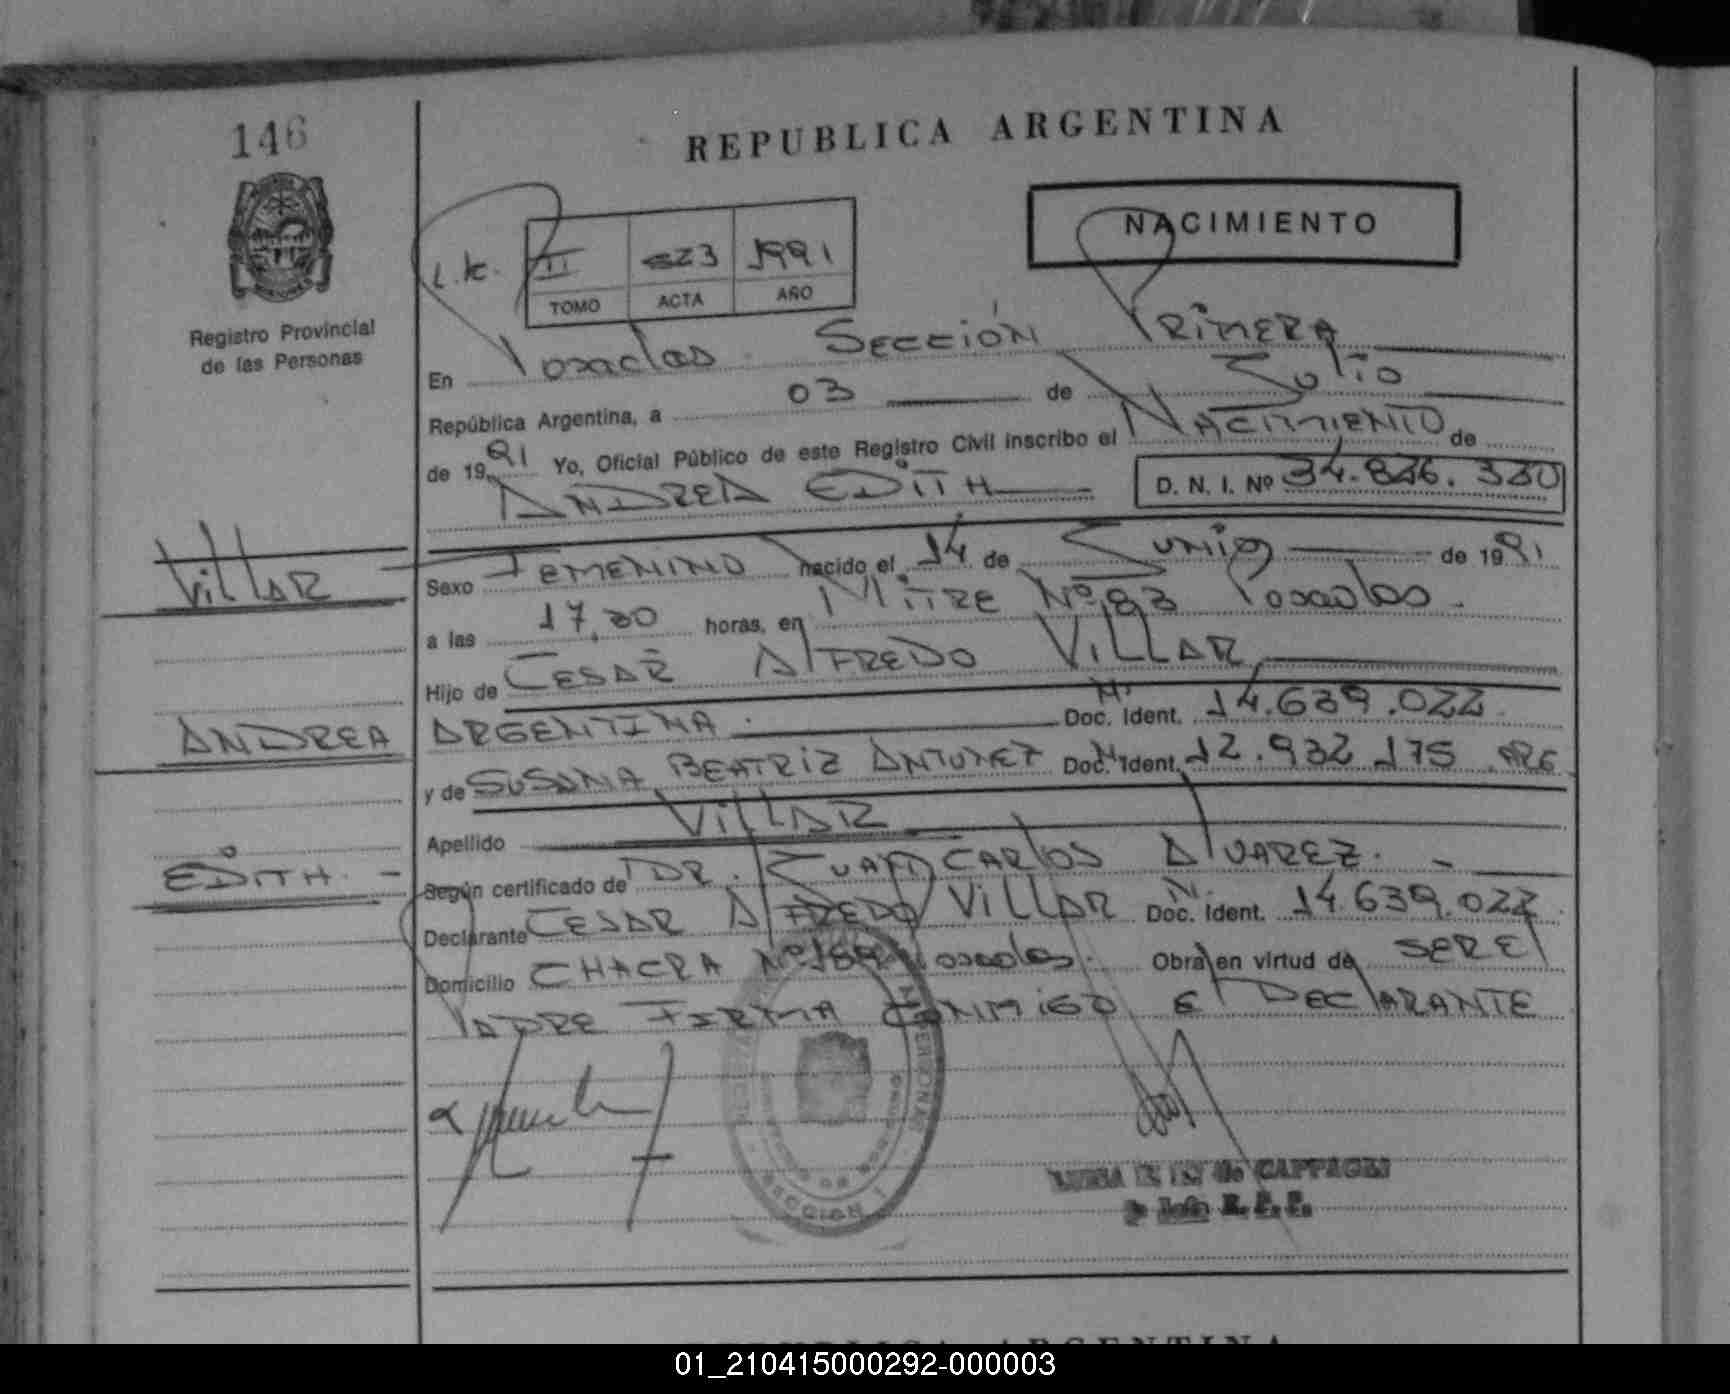 146
REPUBLICA ARGENTINA
NACIMIENTO
II 523 1991
TOMO ACTA AÑO
Registro Provincial
de las Personas
En Posadas Sección Primera
República Argentina, a 03 de Julio
de 1991 Yo, Oficial Público de este Registro Civil inscribo el Nacimiento de
ANDREA EDITH D. N. I. Nº 34.826.330
VILLAR
Sexo FEMENINO nacido el 14 de Junio de 1991
a las 17,30 horas, en MITRE Nº 83 Posadas.
Hijo de CESAR ALFREDO VILLAR
ANDREA
ARGENTINA. Doc. M. Ident. 14.639.022
y de SUSANA BEATRIZ ANTUNEZ Doc. N. Ident. 12.932 175 ARG.
Apellido VILLAR
EDITH. -
Según certificado de DR. JUAN CARLOS ALVAREZ. -
Declarante CESAR ALFREDO VILLAR Doc. N. Ident. 14.639.022
Domicilio CHACRA Nº Posadas. Obra en virtud de SER EL
PADRE FIRMA CONMIGO EL DECLARANTE
SECCION 1
de CAPPAGLI
REPUBLICA ARGENTINA
01_210415000292-000003